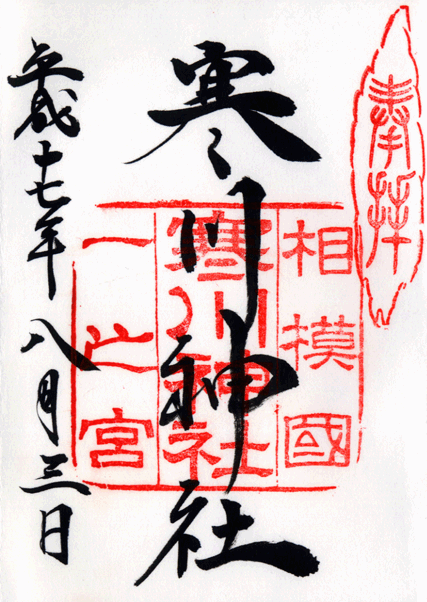 奉拝
相模國
寒川神社
一之宮
寒川神社
平成十七年八月三日